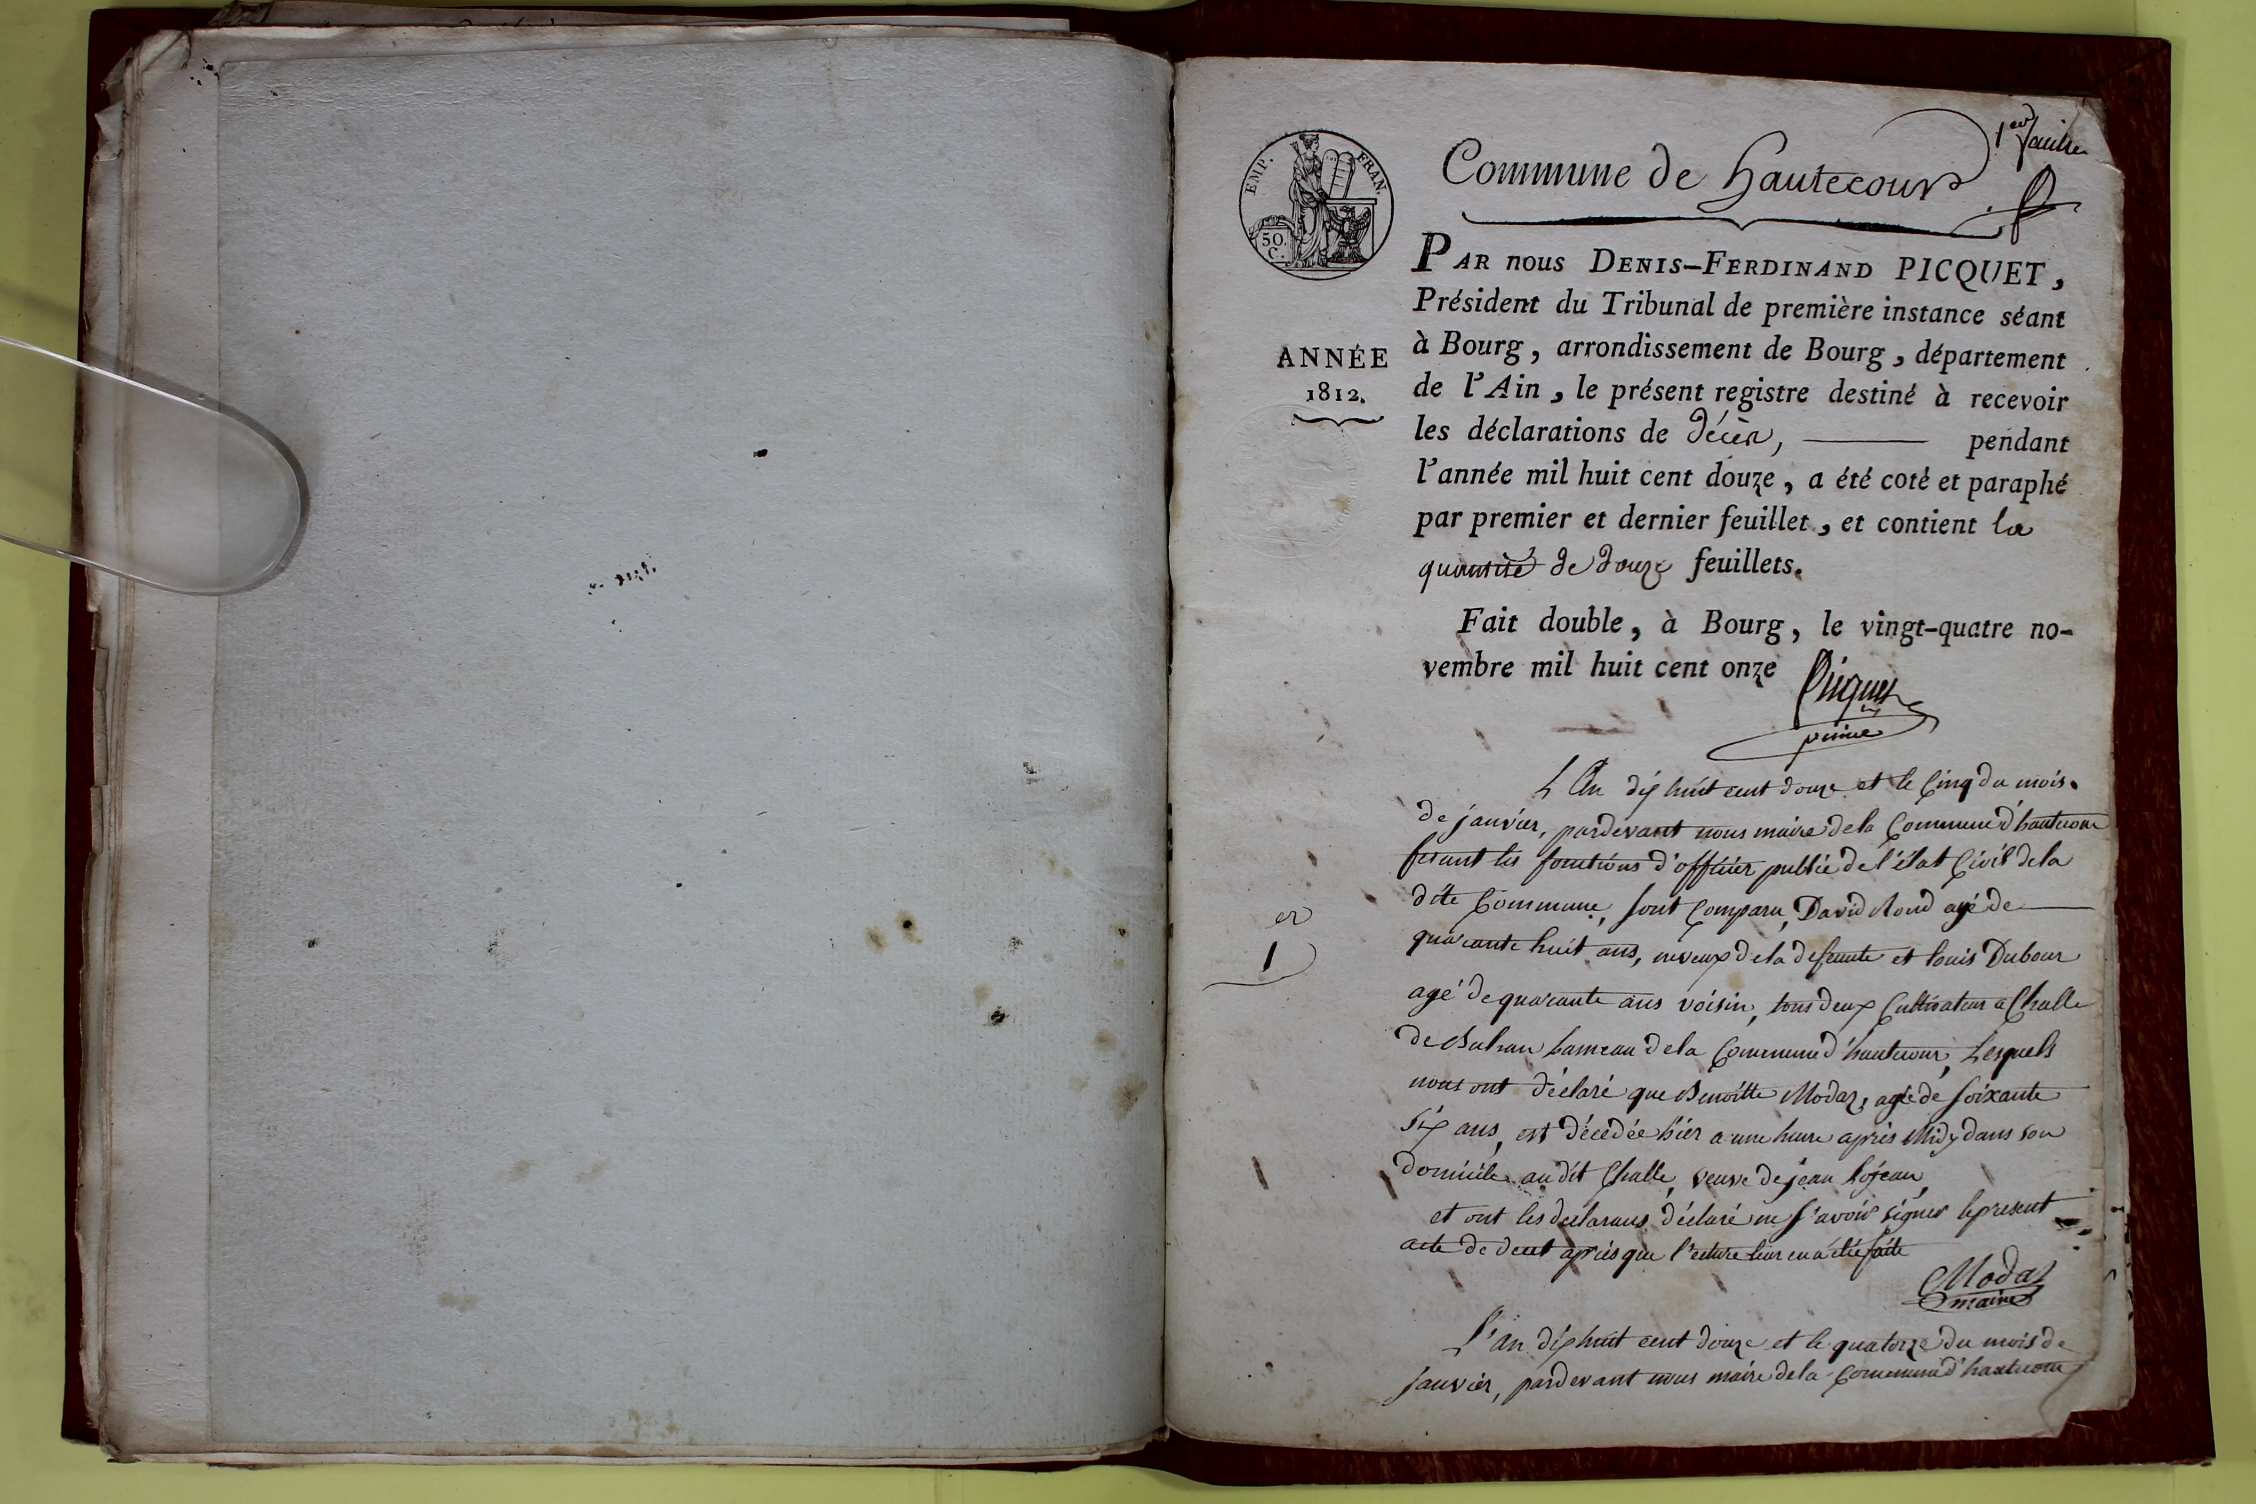 1er feuillet
Commune de hautecour
EMP. FRAN.
50.
C.
PAR nous DENIS-FERDINAND PICQUET,
Président du Tribunal de première instance séant
ANNÉE
1812.
à Bourg, arrondissement de Bourg, département
de l'Ain, le présent registre destiné à recevoir
les déclarations de décès, pendant
l'année mil huit cent douze, a été coté et paraphé
par premier et dernier feuillet, et contient la
quantité de douze feuillets.
Fait double, à Bourg, le vingt-quatre no-
vembre mil huit cent onze
Picquet
L'An dix huit cent douze et le Cinq du mois
de janvier, pardevant nous maire de la Commune d'hautecour
fesant les fonctions d'officier public de l'état Civil de la
dite Commune, sont Comparu, David Rond agé de
er
1
quarante huit ans, neveux de la defeunte et louis Dubour
agé de quarante ans voisin, tous deux Cultivateur a Challe
de Bohan hameau de la Commune d'hautecour, Lesquels
nous ont déclaré que Benoitte Modas, agée de soixante
Six ans, est décédée hier a une heure après Midy dans son
domicile au dit Challe, veuve de jean
et ont les declarans déclaré ne s'avoir signer le present
acte de après que l'ecture leur en a été faite
Modas
maire
L'an dix huit cent douze et le quatorze du mois de
janvier, pardevant nous maire de la Commune d'hautecour